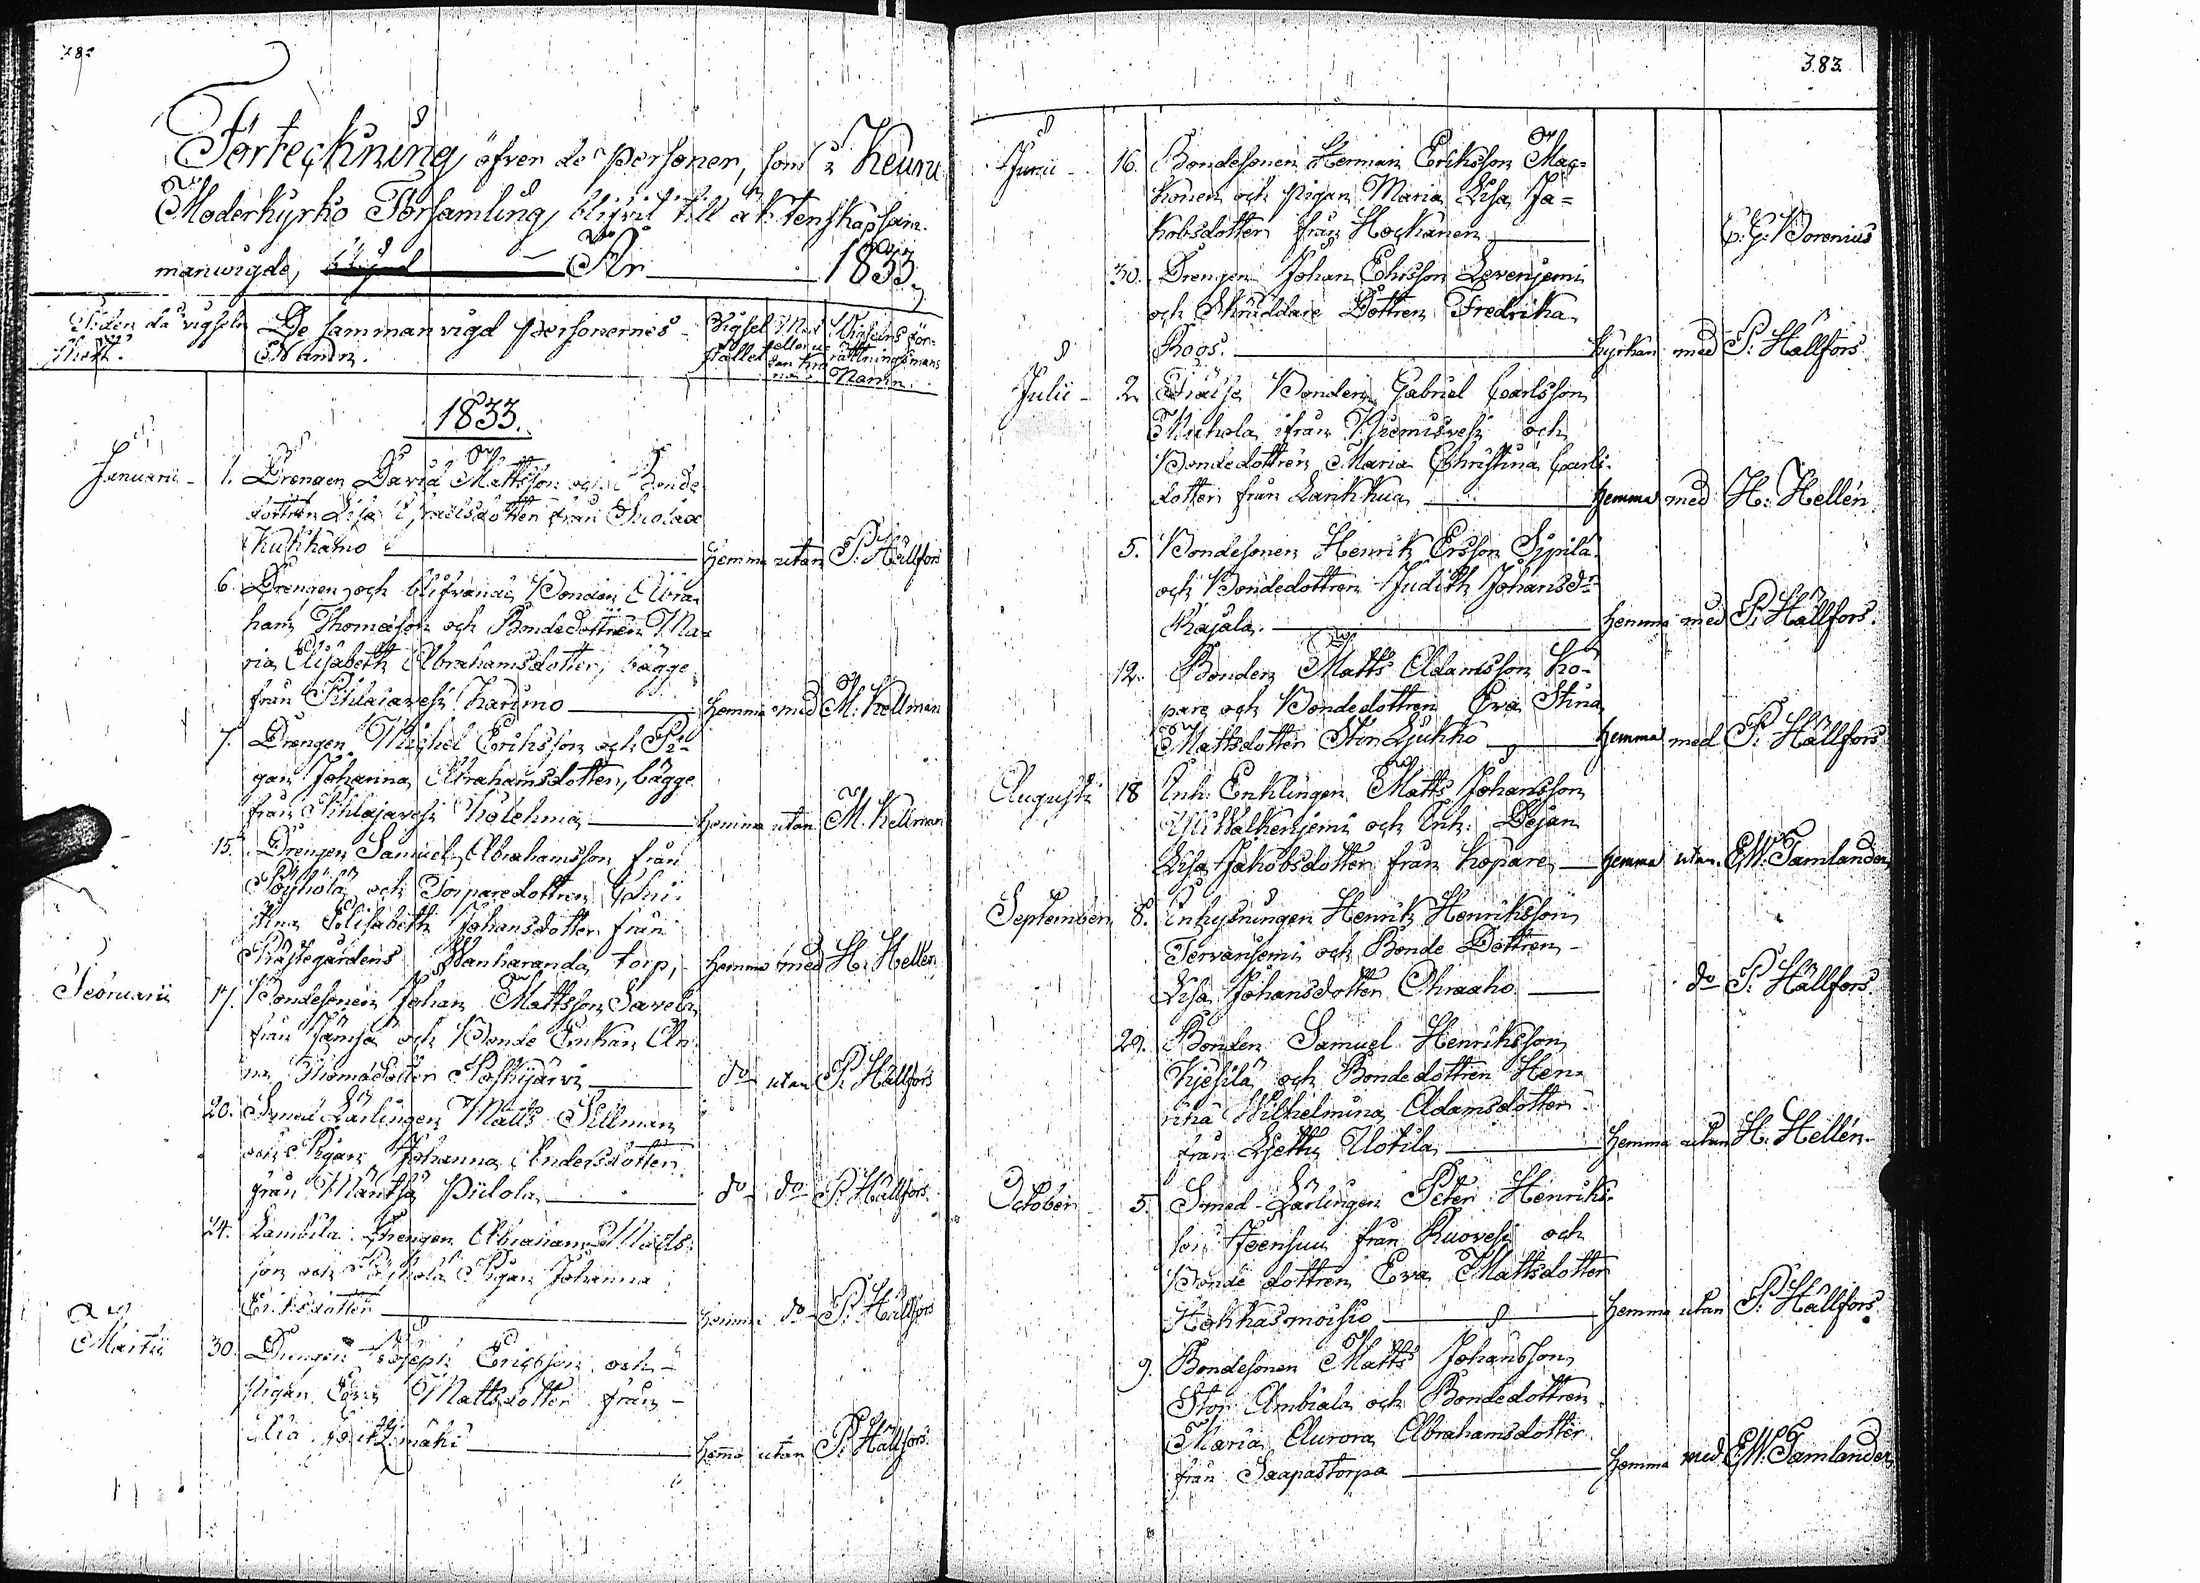 382
Förteckning öfver de personer, som i Keuru
Moderkyrko Församling blifvit till äktenskap sam-
manvigde, År 1833.
Tiden då vigseln
skett.
De sammanvigd personernes
Namn.
Vigsel
stället
Med
eller u
tan kro
na
Vigselns för-
rättningsmans
Namn.
1833.
Januarii 1. Drengen David Mattsson och Bonde
dottren Lisa Israelsdotter från
Kukkamo Hemma utan P. Hällfors
6. Drengen och blifvande Bonden Abra
ham Thomasson och Bondedottren Ma
ria Elisabeth Abrahamsdotter, bägge
från Pihlajavesi Karimo Hemma med M. Kellman
7. Drengen Michel Eriksson och Pi-
gan Johanna Abrahamsdotter, bägge
från Pihlajavesi Kolehma Hemma utan M. Kellman
15. Drengen Samuel Abrahamsson från
Pöyhölä och Torparedottren Chri
stina Elisabeth Johansdotter från
Prästegårdens Wanharanda torp, Hemma med H. Hellén
Februarii 17. Bondesonen Johan Mattsson Savela
från Jämsä och Bonde Enkan An
na Thomasdotter Poshijärvi do utan P. Hällfors
20. Smed Lärlingen Matts Sillman
och Pigan Johanna Andersdotter
från Mäntsä Piilola do do P. Hällfors
24. Lambila Drengen Abraham Matts
son och Pigan Johanna
Eriksdotter Hemma do P. Hällfors
Martii 30. Drengen Joseph Ericsson och
Pigan Eva Mattsdotter från
Hema utan P. Hällfors
383
Junii 16. Bondesonen Herman Eriksson Mac-
konen och pigan Maria Lisa Ja-
kobsdotter från Hockanen C. G. Borenius
30. Drengen Johan Ehrsson Levenjemi
och Skräddare Dottren Fredrika
Roos. Kyrkan med P. Hällfors
Julii 2. Bonden Gabriel Carlsson
från och
Bondedottren Maria Christina Carls
dotter från Larikkua Hemma med H. Hellén
5. Bondesonen Henrik Ersson Sipilä
och Bondedottren Judith Johansdr
Kajala. Hemma med P. Hällfors.
12. Bonden Matts Adamsson Ko-
pare och Bondedottren Eva Stina
Mattsdotter Stor Ljukko Hemma med P. Hällfors
Augusti 18 Inh. Enklingen Matts Johansson
Walkenjemi och Inh. Dejan
Lisa Jakobsdotter från Kopare Hemma utan E W. Tamlander
September 8. Inhysningen Henrik Henriksson
Tervanjemi och Bonde Dottren
Lisa Johansdotter Ohraaho do P. Hällfors
29. Bonden Samuel Henriksson
Kjesilä och Bondedottren Hen-
rika Wilhelmina Adamsdotter
från Ljetty Uotila Hemma utan H. Hellén
October 5. Smed-Lärlingen Peter Henriks
son Joensuu från Ruovesi och
Bonde dottren Eva Mattsdotter
Hokkasmoisio Hemma utan P. Hällfors
9. Bondesonen Matts Johansson
Stor Ambiala och Bondedottren
Maria Aurora Abrahamsdotter
från Saapastorpa Hemma med E W. Tamlander